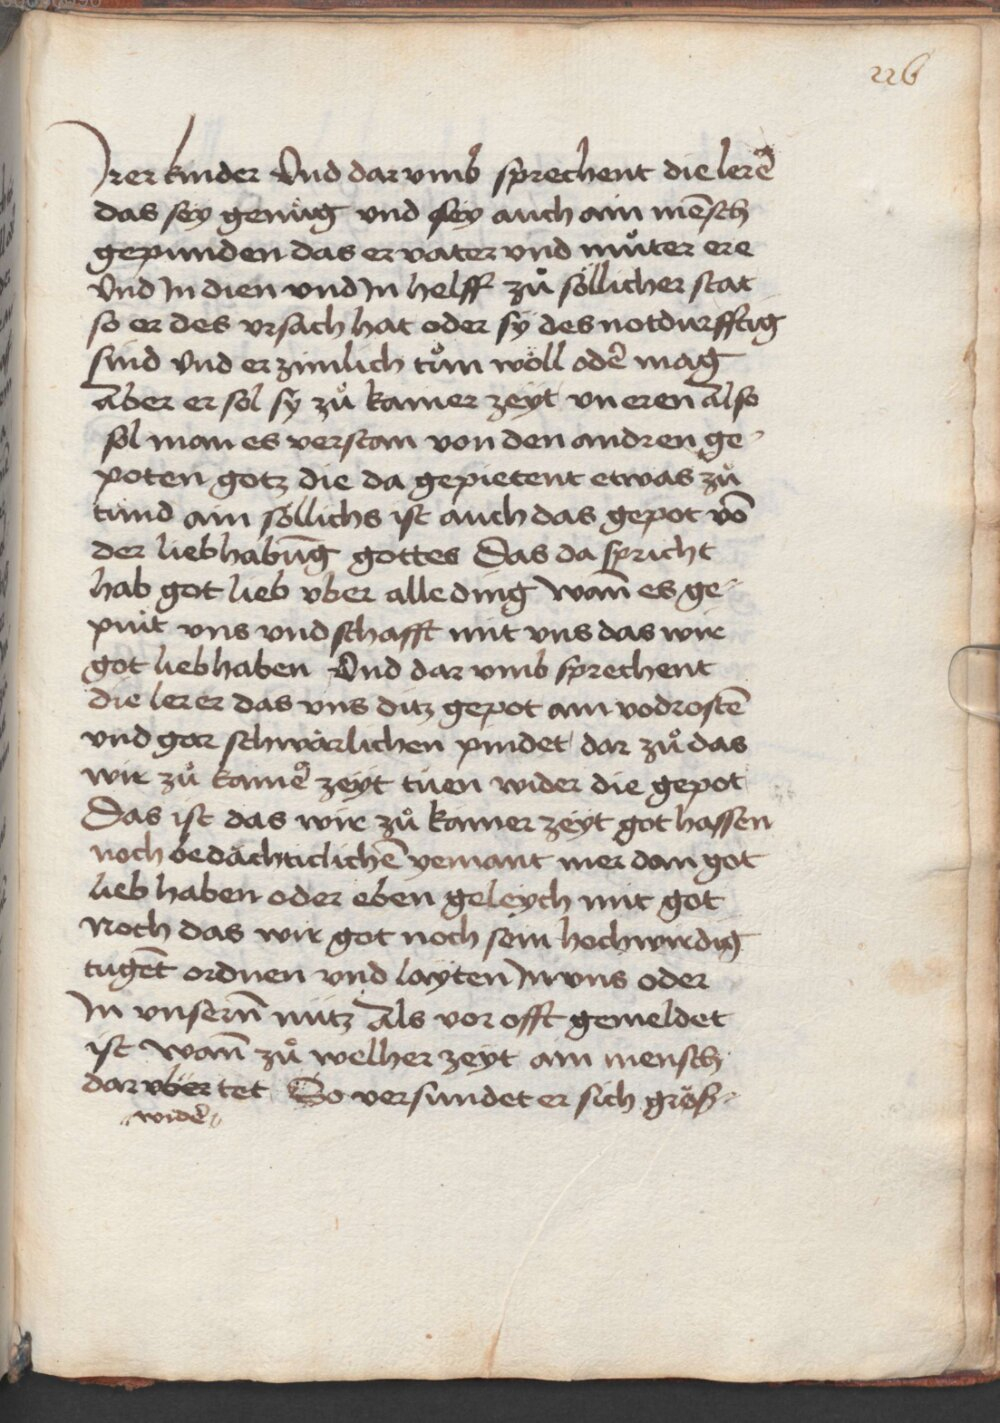 226
Irer kinder Vnd dar vmb sprechent die lerē
das sey genůg vnd sey auch ain mēsch
gepunden das er vater vnd můter ere
Vnd In dien vnd In helff zů söllicher stat
so er des vrsach hat oder sÿ des notdurfftig
sind Vnd er zimlich tůn wöll odē mag
Aber er sol sÿ zů kainer zeÿt vneren Also
sol man es verstan von den andren ge-
poten gotz die da gepietent etwas zů
tund ain söllichs ist auch das gepot vō
der liebhabūg gottes Das da spricht
hab got lieb vber alle ding Wan̄ es ge-
piut vns vnd schafft mit vns das wir
got lieb haben Vnd dar vmb sprechent
die lerer das vns ditz gepot am vodrostē
vnd gar schwärlichen pindet dar zů das
wir zů kainē zeÿt tüen wider die gepot
Das ist das wir zů kainer zeÿt got hassen
noch bedächticlichē yemant mer dan got
lieb haben oder eben geleÿch mit got
Noch das wir got noch sein hochwirdig
tugēt ordnen vnd laÿten In vns oder
In vnsern̄ nütz Als vor offt gemeldet
ist Wan̄ zů welher zeÿt ain mensch
dar vber tet So versundet er sich größ-
widē